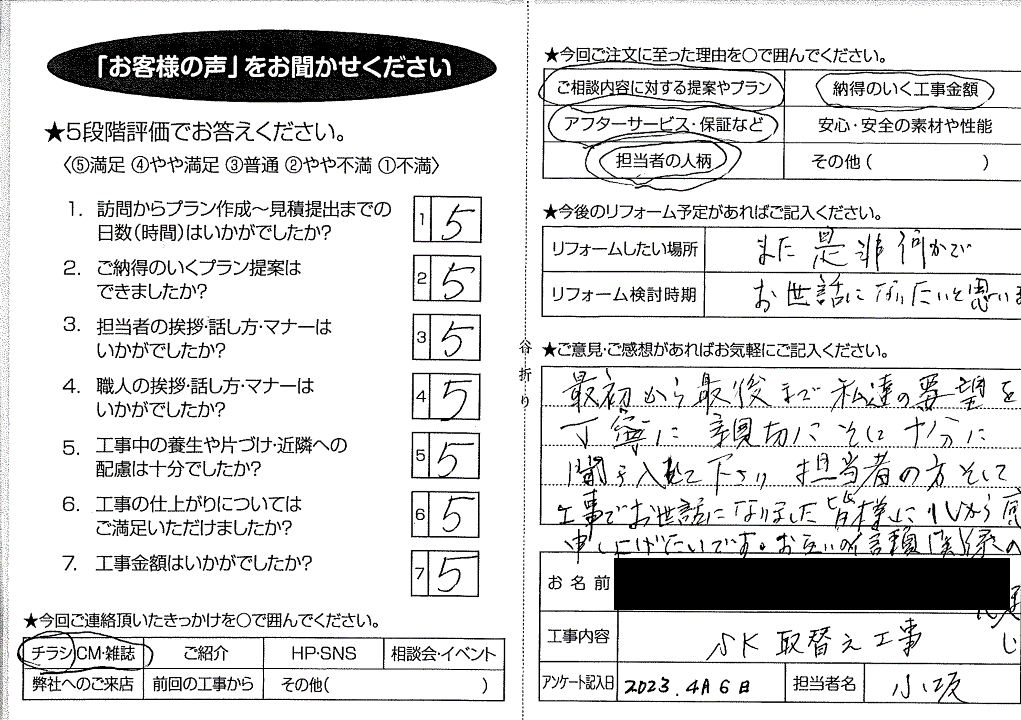 「お客様の声」をお聞かせください
★5段階評価でお答えください。
〈⑤満足 ④やや満足 ③普通 ②やや不満 ①不満〉
1. 訪問からプラン作成〜見積提出までの
日数(時間)はいかがでしたか?
1 5
2. ご納得のいくプラン提案は
できましたか?
2 5
3. 担当者の挨拶・話し方・マナーは
いかがでしたか?
3 5
4. 職人の挨拶・話し方・マナーは
いかがでしたか?
4 5
5. 工事中の養生や片づけ・近隣への
配慮は十分でしたか?
5 5
6. 工事の仕上がりについては
ご満足いただけましたか?
6 5
7. 工事金額はいかがでしたか?
7 5
★今回ご連絡頂いたきっかけを○で囲んでください。
チラシ CM・雑誌 ご紹介 HP・SNS 相談会・イベント
弊社へのご来店 前回の工事から その他( )
谷折り
★今回ご注文に至った理由を○で囲んでください。
ご相談内容に対する提案やプラン 納得のいく工事金額
アフターサービス・保証など 安心・安全の素材や性能
担当者の人柄 その他( )
★今後のリフォーム予定があればご記入ください。
リフォームしたい場所 また是非何かで
リフォーム検討時期 お世話になりたいと思いま
★ご意見・ご感想があればお気軽にご記入ください。
最初から最後まで私達の要望を
丁寧に親切にそして十分に
聞き入れて下さり 担当者の方そして
工事でお世話になりました皆様に心から感
申し上げたいです。お互いの信頼関係の
お名前
工事内容 SK取替え工事
アンケート記入日 2023.4月6日 担当者名 小坂